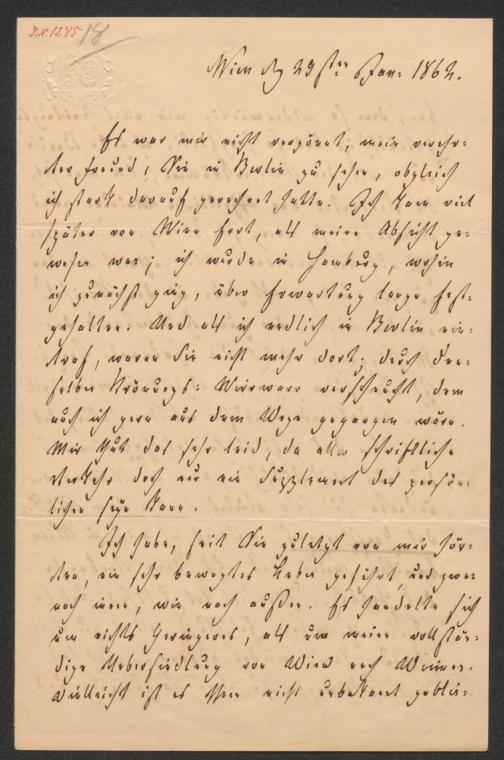 J.N. 1245
18
Wien d 29sten Jan: 1862.
Es war mir nicht vergönnt, mein verehr-
ter Freund, Sie in Berlin zu sehen, obgleich
ich stark darauf gerechnet hatte. Ich kam viel
später von Wien fort, als meine Absicht ge-
wesen war; ich wurde in Hamburg, wohin
ich zunächst ging, über Erwartung lange fest-
gehalten. Und als ich endlich in Berlin ein-
traf, waren Sie nicht mehr dort, durch den-
selben Krönungs-Wirrwarr verscheucht, dem
auch ich gern aus dem Wege gegangen wäre.
Mir that das sehr leid, da aller schriftliche
Verkehr doch nur ein Supplement des persön-
lichen seyn kann.
Ich habe, seit Sie zuletzt von mir hör-
ten, ein sehr bewegtes Leben geführt, und zwar
nach innen, wie nach außen. Es handelte sich
um nichts Geringeres, als um meine vollstän-
dige Uebersiedlung von Wien nach Weimar.
Vielleicht ist es Ihnen nicht unbekannt geblie-